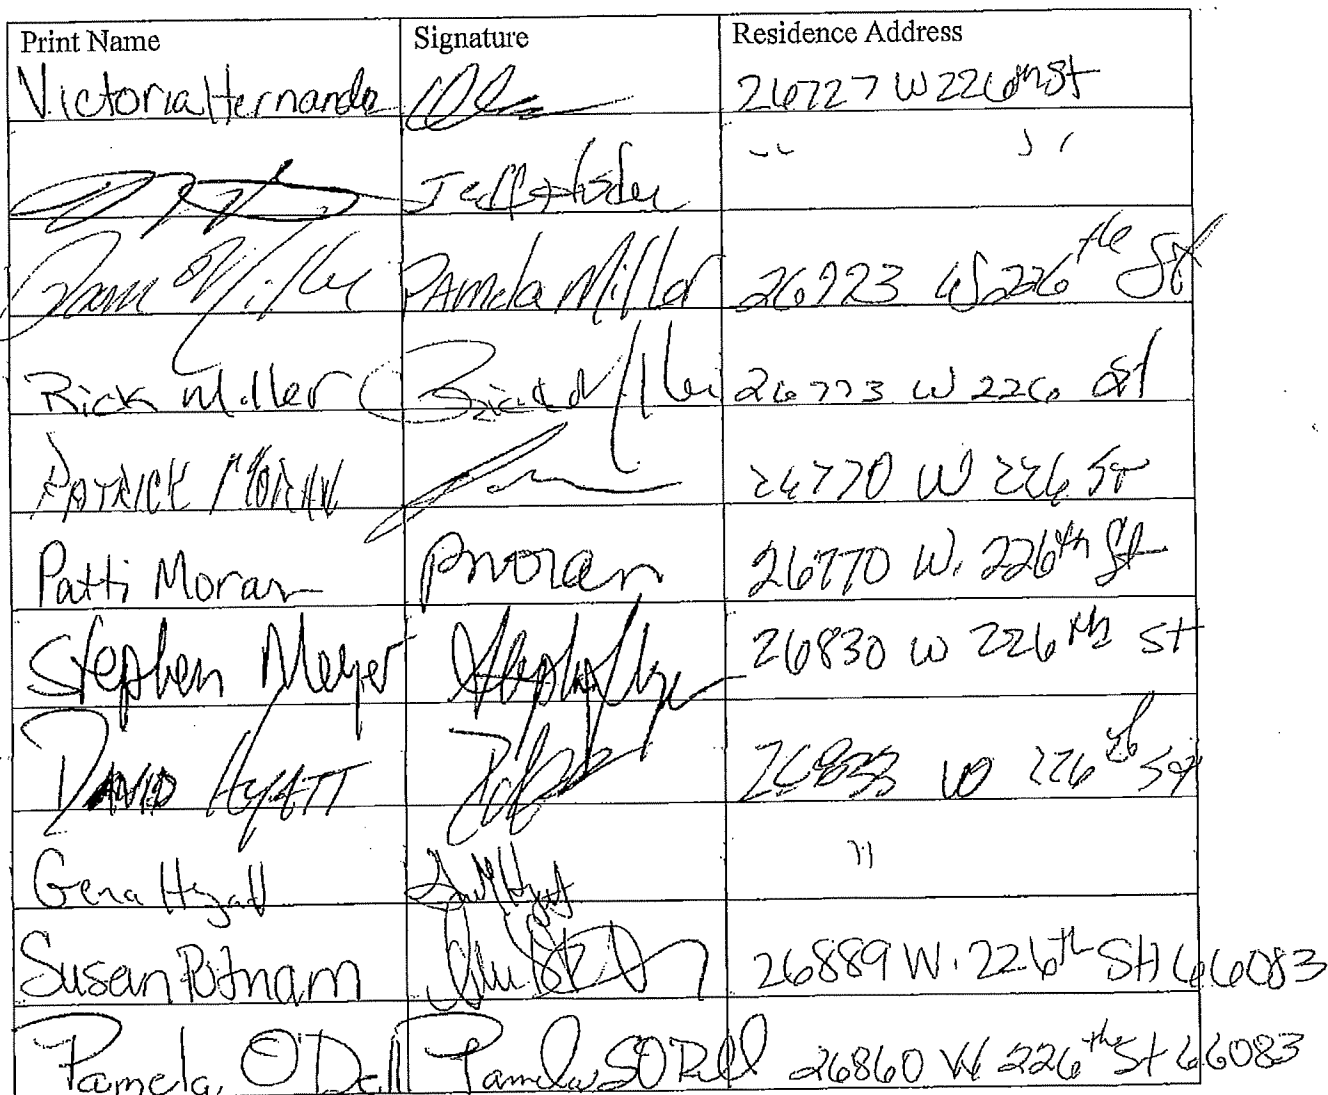 Print Name Signature Residence Address
Victoria Hernande 26727 W 226th St
Jeff
Pam Miller Pamela Miller 26923 W 226th St
Rick Miller Rick Miller 26773 W 226 St
PATRICK MORAN 26770 W 226 ST
Patti Moran PMoran 26770 W. 226th St
Stephen Meyer Stephen Meyer 26830 W 226th St
DAVID HYATT 26833 W 226th St
Gena Hyatt Gena Hyatt "
Susan Putnam 26889 W. 226th St 66083
Pamela O'Dell Pamela S O'Dell 26860 W 226th St 66083